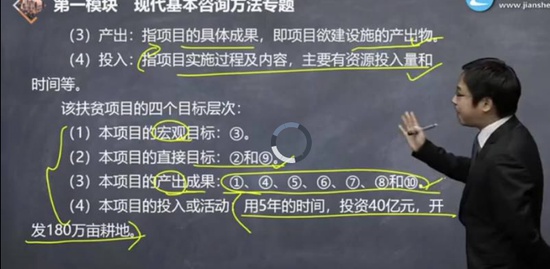 第一模块 现代基本咨询方法专题
www.jianshe
(3) 产出：指项目的具体成果，即项目欲建设施的产出物。
(4) 投入：指项目实施过程及内容，主要有资源投入量和
时间等。
该扶贫项目的四个目标层次：
(1) 本项目的宏观目标：③。
(2) 本项目的直接目标：②和⑨。
(3) 本项目的产出成果：①、④、⑤、⑥、⑦、⑧和⑩。
(4) 本项目的投入或活动 用5年的时间，投资40亿元，开
发180万亩耕地。